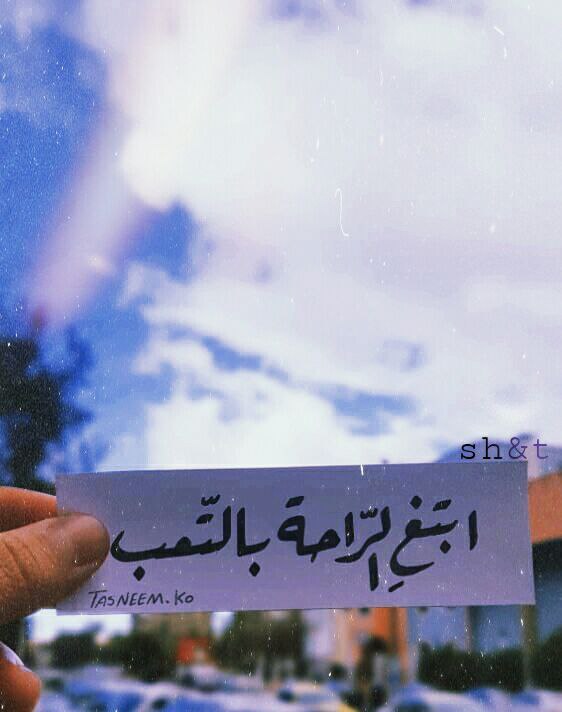 sh&t
ابتغِ الرّاحة بالتّعب
TASNEEM.KO